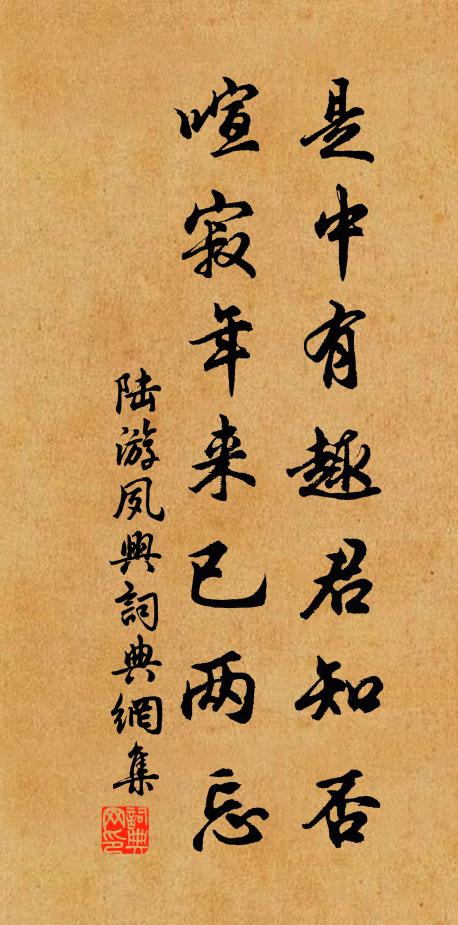 是中有趣君知否
喧寂年来已两忘
陆游夙興詞典網集
詞典网印